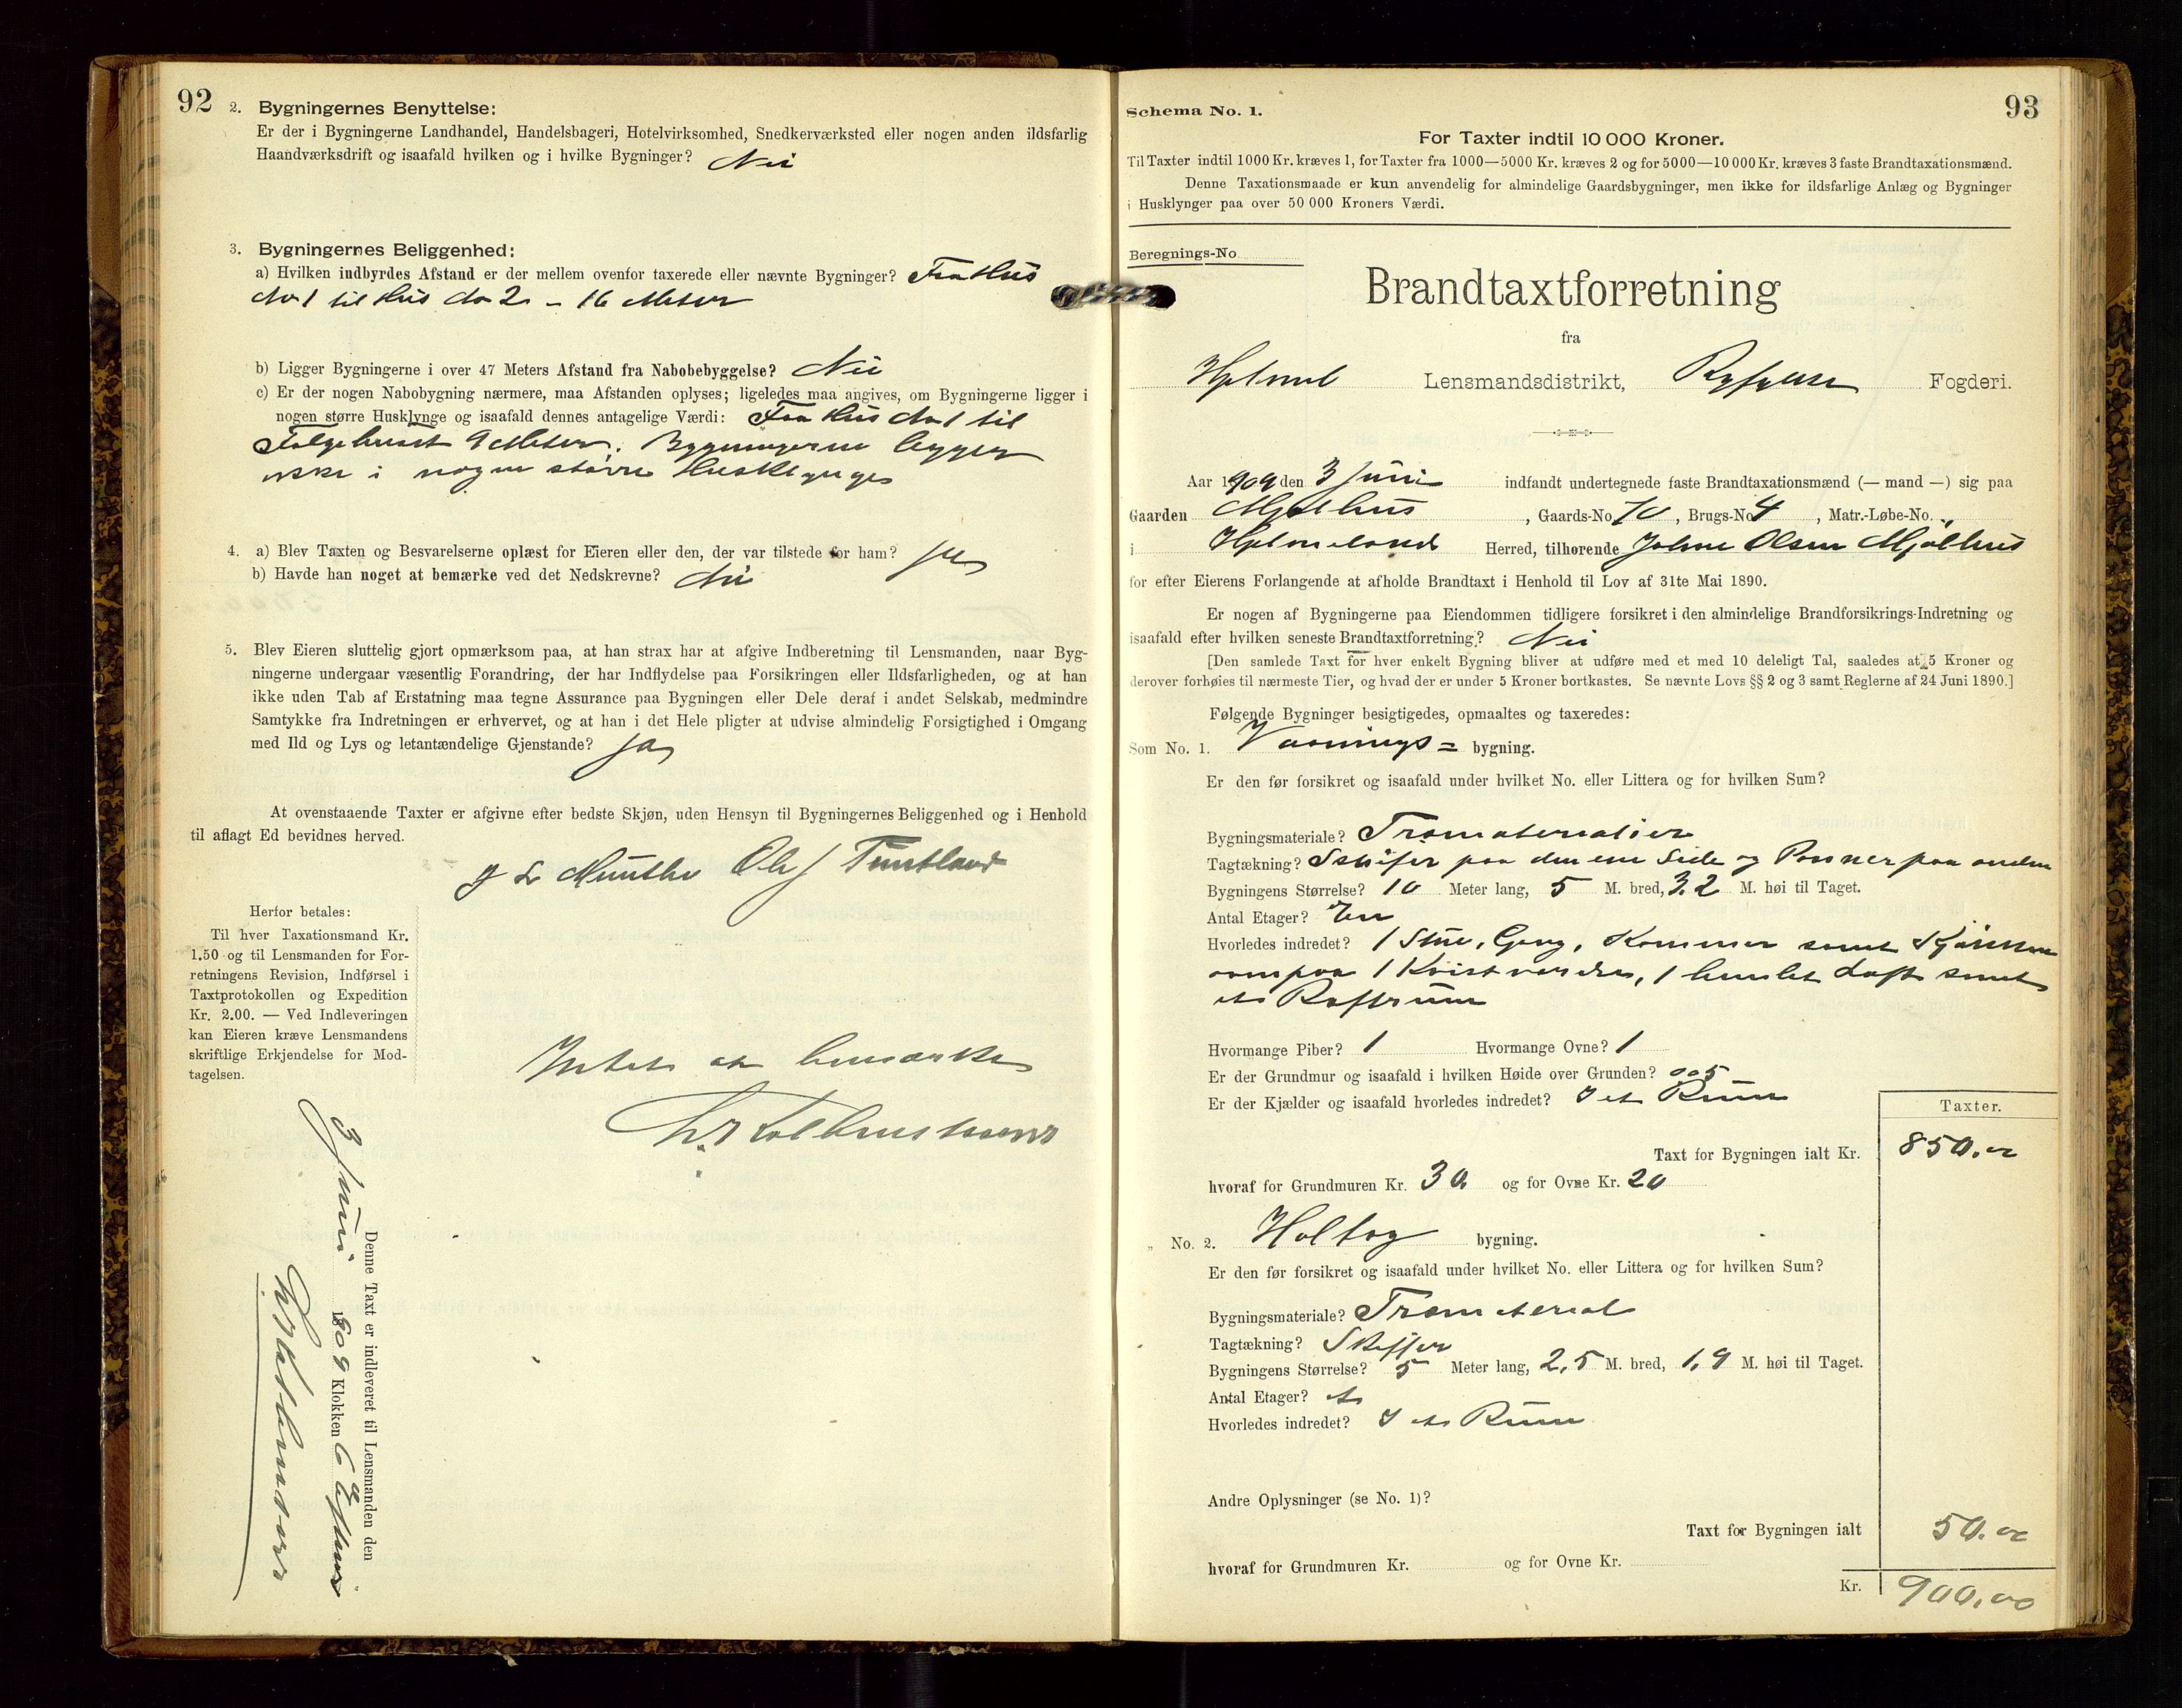 92
2. Bygningernes Benyttelse:
Er der i Bygningerne Landhandel, Handelsbageri, Hotelvirksomhed, Snedkerværksted eller nogen anden ildsfarlig
Haandværksdrift og isaafald hvilken og i hvilke Bygninger? Nei
3. Bygningernes Beliggenhed:
a) Hvilken indbyrdes Afstand er der mellem ovenfor taxerede eller nævnte Bygninger? Fra Hus
No 1 til Hus No 2 - 16 Meter
b) Ligger Bygningerne i over 47 Meters Afstand fra Nabobebyggelse? Nei
c) Er der nogen Nabobygning nærmere, maa Afstanden oplyses; ligeledes maa angives, om Bygningerne ligger i
nogen større Husklynge og isaafald dennes antagelige Værdi: Fra Hus No 1 til
9 Meter. Bygningerne ligger
ikke i nogen større
4. a) Blev Taxten og Besvarelserne oplæst for Eieren eller den, der var tilstede for ham? Ja
b) Havde han noget at bemærke ved det Nedskrevne? Nei
5. Blev Eieren sluttelig gjort opmærksom paa, at han strax har at afgive Indberetning til Lensmanden, naar Byg-
ningerne undergaar væsentlig Forandring, der har Indflydelse paa Forsikringen eller Ildsfarligheden, og at han
ikke uden Tab af Erstatning maa tegne Assurance paa Bygningen eller Dele deraf i andet Selskab, medmindre
Samtykke fra Indretningen er erhvervet, og at han i det Hele pligter at udvise almindelig Forsigtighed i Omgang
med Ild og Lys og letantændelige Gjenstande? Ja
At ovenstaaende Taxter er afgivne efter bedste Skjøn, uden Hensyn til Bygningernes Beliggenhed og i Henhold
til aflagt Ed bevidnes herved.
Munthe Ole J Tuntland
Herfor betales:
Til hver Taxationsmand Kr.
1.50 og til Lensmanden for For-
retningens Revision, Indførsel i
Taxtprotokollen og Expedition
Kr. 2.00. — Ved Indleveringen
kan Eieren kræve Lensmandens
skriftlige Erkjendelse for Mod-
tagelsen.
Intet at bemærke
Denne Taxt er indleveret til Lensmanden den
3 Juni 1909 Klokken 6 Efterm
93
Schema No. 1.
For Taxter indtil 10 000 Kroner.
Til Taxter indtil 1000 Kr. kræves 1, for Taxter fra 1000—5000 Kr. kræves 2 og for 5000—10 000 Kr. kræves 3 faste Brandtaxationsmænd.
Denne Taxationsmaade er kun anvendelig for almindelige Gaardsbygninger, men ikke for ildsfarlige Anlæg og Bygninger
i Husklynger paa over 50 000 Kroners Værdi.
Beregnings-No
Brandtaxtforretning
fra
Lensmandsdistrikt, Ryfylke Fogderi.
Aar 1909 den 3 Juni indfandt undertegnede faste Brandtaxationsmænd (— mand —) sig paa
Gaarden Mjølhus, Gaards-No 70, Brugs-No 4, Matr.-Løbe-No. „
i Hjelmeland Herred, tilhørende Johne Olsen Mjølhus
for efter Eierens Forlangende at afholde Brandtaxt i Henhold til Lov af 31te Mai 1890.
Er nogen af Bygningerne paa Eiendommen tidligere forsikret i den almindelige Brandforsikrings-Indretning og
isaafald efter hvilken seneste Brandtaxtforretning? Nei
[Den samlede Taxt for hver enkelt Bygning bliver at udføre med et med 10 deleligt Tal, saaledes at 5 Kroner og
derover forhøies til nærmeste Tier, og hvad der er under 5 Kroner bortkastes. Se nævnte Lovs §§ 2 og 3 samt Reglerne af 24 Juni 1890.]
Følgende Bygninger besigtigedes, opmaaltes og taxeredes:
Som No. 1. Vaanings= bygning.
Er den før forsikret og isaafald under hvilket No. eller Littera og for hvilken Sum?
Bygningsmateriale? Træmaterialier
Tagtækning? Skifer paa den ene Side og Panner paa anden
Bygningens Størrelse? 10 Meter lang, 5 M. bred, 3.2 M. høi til Taget.
Antal Etager? En
Hvorledes indredet? 1 Stue, Gang, Kammer samt Kjøkken
ovenpaa 1 Kvistværelse, 1 Loft samt
et
Hvormange Piber? 1 Hvormange Ovne? 1
Er der Grundmur og isaafald i hvilken Høide over Grunden? 0.05
Er der Kjælder og isaafald hvorledes indredet? I et Rum
Taxter.
Taxt for Bygningen ialt Kr. 850.00
hvoraf for Grundmuren Kr. 30. og for Ovne Kr. 20
„ No. 2. bygning.
Er den før forsikret og isaafald under hvilket No. eller Littera og for hvilken Sum?
Bygningsmateriale? Træmaterial
Tagtækning? Skiffer
Bygningens Størrelse? 5 Meter lang, 2,5 M. bred, 1,9 M. høi til Taget.
Antal Etager? et
Hvorledes indredet? I et Rum
Andre Oplysninger (se No. 1)?
Taxt for Bygningen ialt 50.00
hvoraf for Grundmuren Kr. og for Ovne Kr.
Kr. 900,00